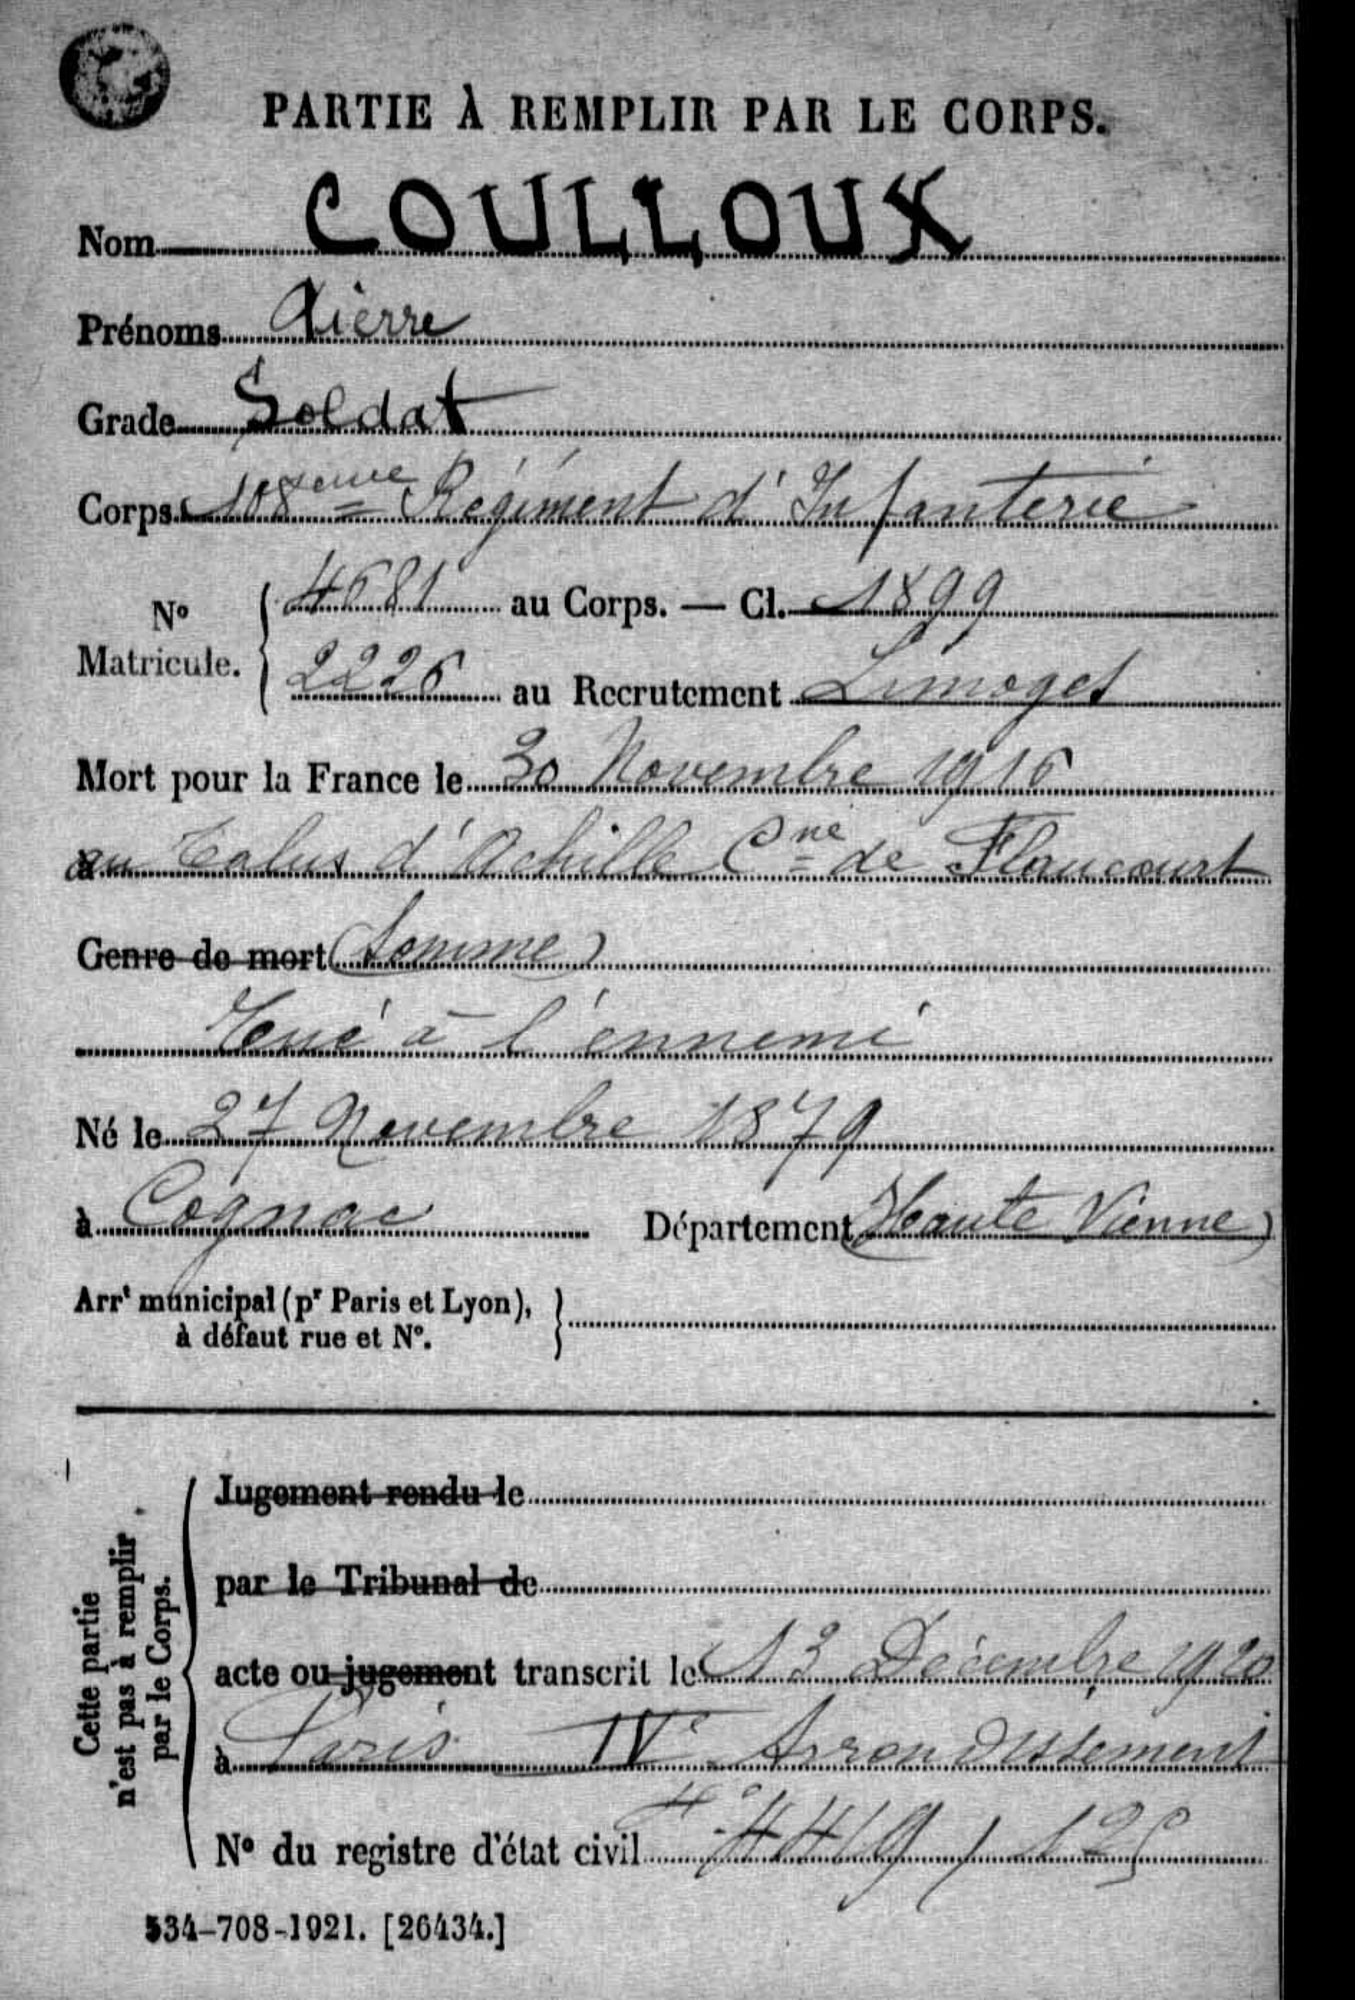 PARTIE À REMPLIR PAR LE CORPS.
Nom COULLOUX
Prénoms Pierre
Grade Soldat
Corps 108eme Régiment d'Infanterie
No Matricule. 4681 au Corps. — Cl. 1899
2226 au Recrutement Limoges
Mort pour la France le 30 Novembre 1916
au Talus d'Achille Cne de Flaucourt
Genre de mort (Somme)
Tué à l'ennemi
Né le 27 Novembre 1879
à Cognac Département (Haute Vienne)
Arrt municipal (pr Paris et Lyon),
à défaut rue et No.
Cette partie
n'est pas à remplir
par le Corps.
Jugement rendu le
par le Tribunal de
acte ou jugement transcrit le 13 Décembre 1920
à Paris IVe Arrondissement
No du registre d'état civil
534-708-1921. [26434.]